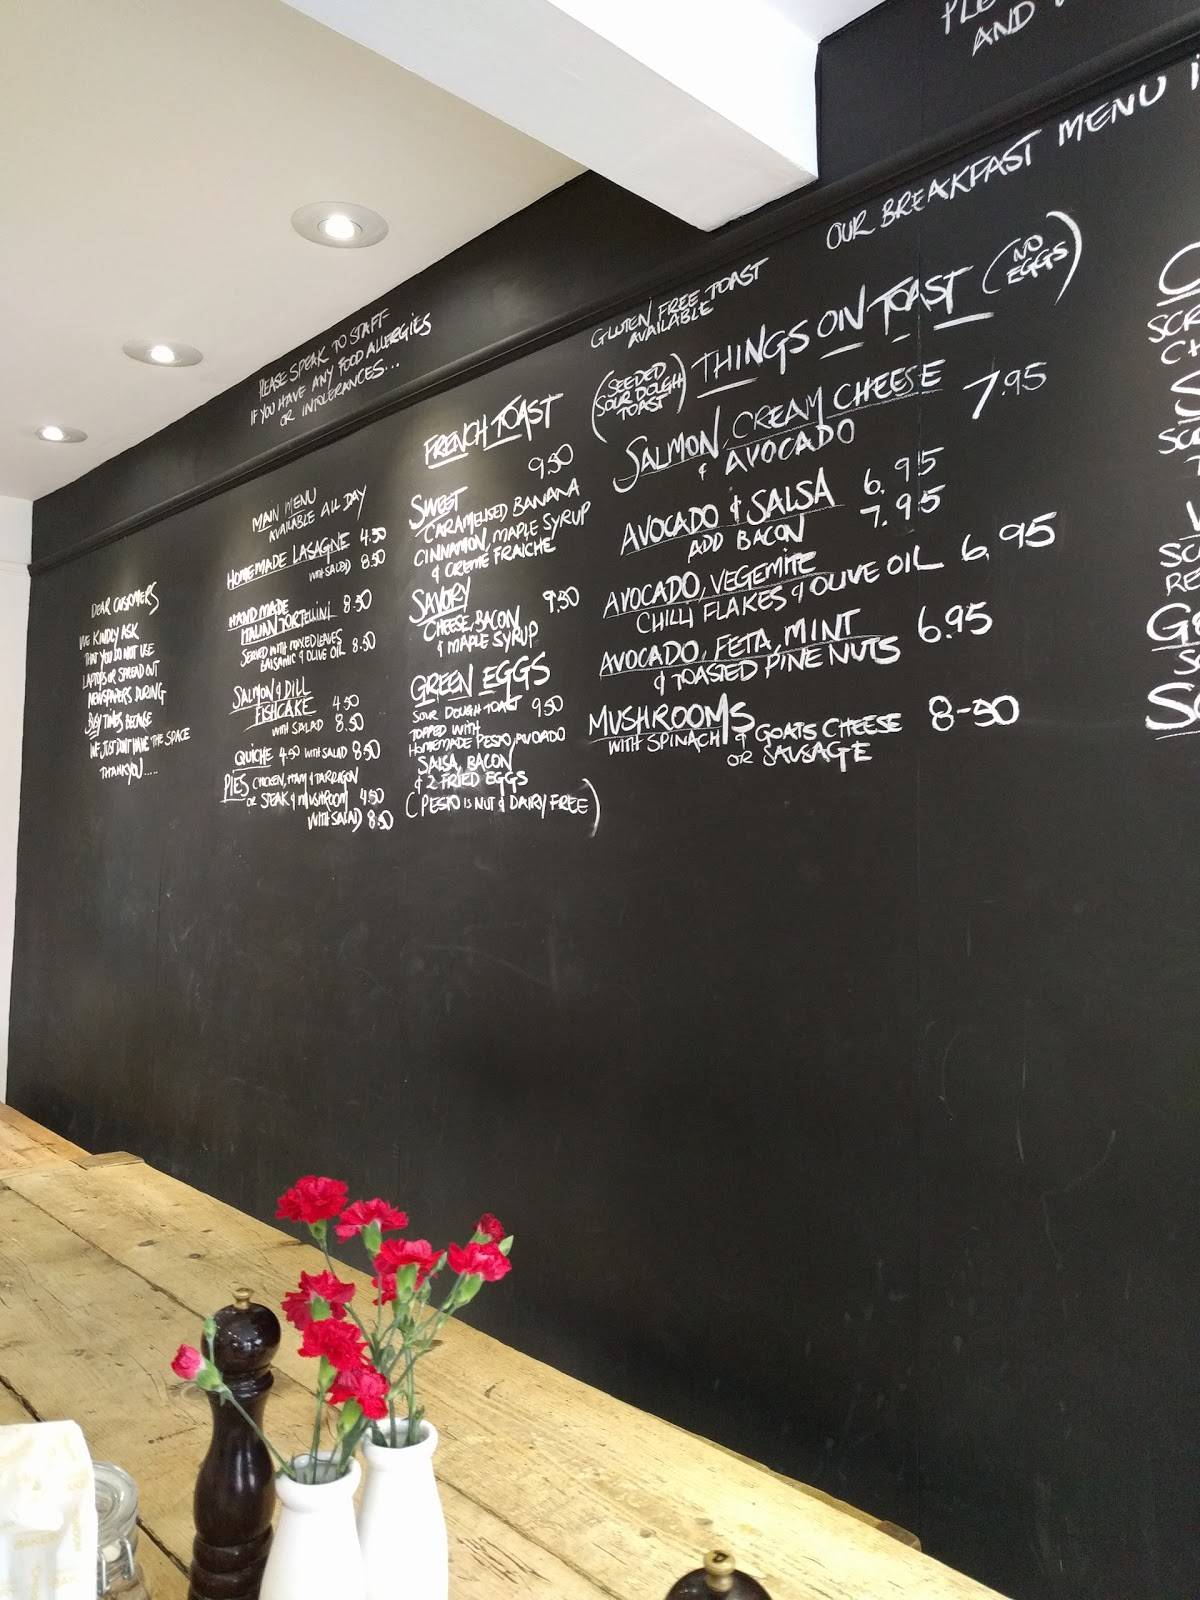 AND
OUR BREAKFAST MENU
PLEASE SPEAK TO STAFF
IF YOU HAVE ANY FOOD ALLERGIES
OR INTOLERANCES...
DEAR CUSTOMERS
WE KINDLY ASK
THAT YOU DO NOT USE
LAPTOPS OR SPREAD OUT
NEWSPAPERS DURING
BUSY TIMES BECAUSE
WE JUST DON'T HAVE THE SPACE
THANKYOU.....
MAIN MENU
AVAILABLE ALL DAY
HOMEMADE LASAGNE 4.50
WITH SALAD 8.50
HAND MADE
ITALIAN TORTELLINI 8.50
SERVED WITH MIXED LEAVES
BALSAMIC & OLIVE OIL 8.50
SALMON & DILL
FISHCAKE 4.50
WITH SALAD 8.50
QUICHE 4.50 WITH SALAD 8.50
PIES CHICKEN, HAM & TARRAGON
OR STEAK & MUSHROOM 4.50
WITH SALAD 8.50
FRENCH TOAST
9.50
SWEET
CARAMELISED BANANA
CINNAMON, MAPLE SYRUP
& CREME FRAICHE
SAVORY 9.50
CHEESE, BACON
& MAPLE SYRUP
GREEN EGGS
SOUR DOUGH TOAST 9.50
TOPPED WITH
HOMEMADE PESTO, AVOCADO
SALSA, BACON
& 2 FRIED EGGS
(PESTO IS NUT & DAIRY FREE)
GLUTEN FREE TOAST
AVAILABLE
(SEEDED
SOUR DOUGH
TOAST)
THINGS ON TOAST (NO
EGGS)
SALMON, CREAM CHEESE 7.95
& AVOCADO
AVOCADO & SALSA 6.95
ADD BACON 7.95
AVOCADO, VEGEMITE
CHILLI FLAKES & OLIVE OIL 6.95
AVOCADO, FETA, MINT 6.95
& TOASTED PINE NUTS
MUSHROOMS
WITH SPINACH & GOATS CHEESE 8-50
OR SAUSAGE